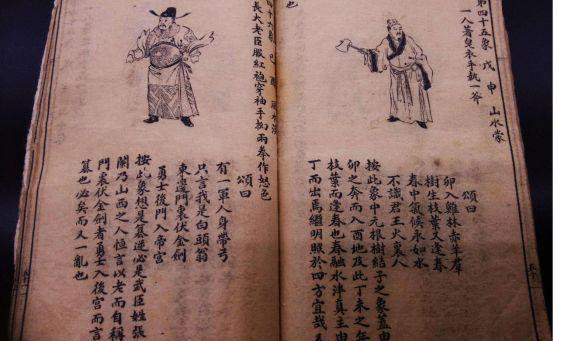 第四十五象 戊申 山水蒙
一人著皂衣手執一斧
頌曰
卯入雞林赤草
樹生枝葉又逢春
春中氣候未如水
不識君王火裏人
按此象中元根樹結子之象蓋由
卯之奔而入酉地及此丁未之年
枝葉而逢春也春融水泮真主由
丁而出焉繼明照於四方宜哉
也
十六象 己酉 風水渙
長大老臣服紅袍穿袖手揣兩拳作怒色
頌曰
有一軍人身帶弓
只言我是白頭翁
東邊門裏伏金劍
勇士後門入帝宮
按此象想是篡逆必是武臣姓張
乃山西之人恒言以老而自稱
門東伏金劍者勇士入後宮而言
篡也必矣而又一亂也